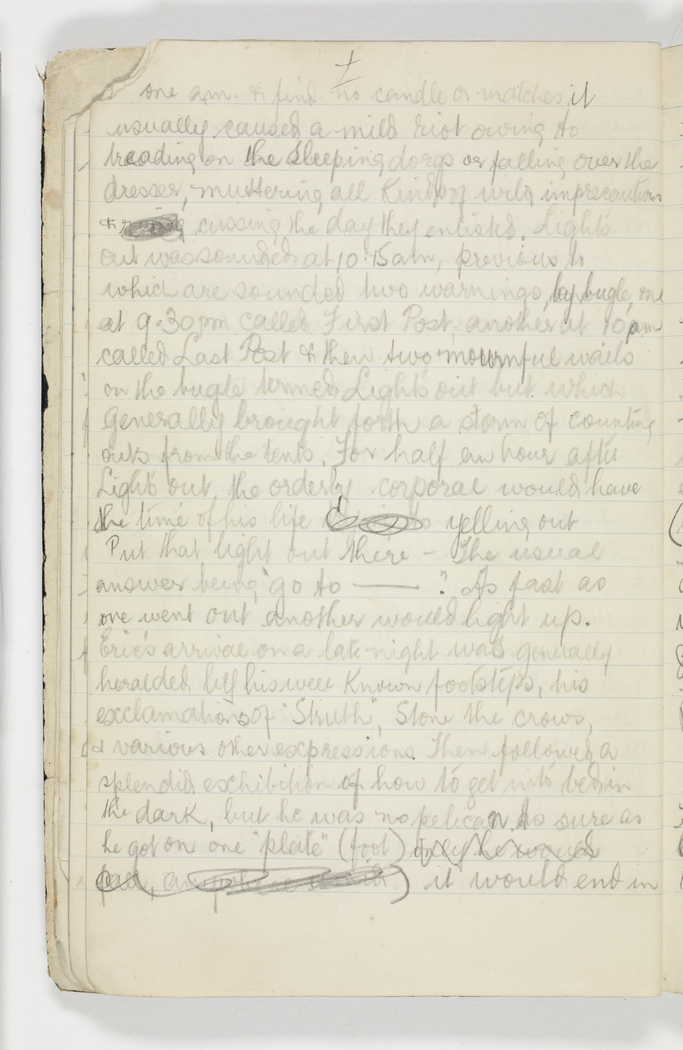 one a.m. & find no candle or matches it
usually caused a mild riot owing to
treading on the sleeping dorgs or falling over the
dresser, muttering all kinds of wild imprecations
& cussing the day they enlisted. Lights
out was sounded at 10.15am, previous to
which are sounded two warnings, by bugle, one
at 9.30pm called First Post, another at 10pm
called Last Post & then two mournful wails
on the bugle termed Lights out but which
generally brought forth a storm of counting
outs from the tents. For half an hour after
Lights out, the orderly corporal would have
the time of his life yelling out
Put that light out there – The usual
answer being "go to —— ". As fast as
one went out another would light up.
Eric's arrival on a late night was generally
heralded by his well known footsteps, his
exclamations of "Struth", Stone the crows,
& various other expressions. Then followed a
splendid exhibition of how to get into bed in
the dark, but he was no pelican. As sure as
he got on one "plate" (foot)
it would end in